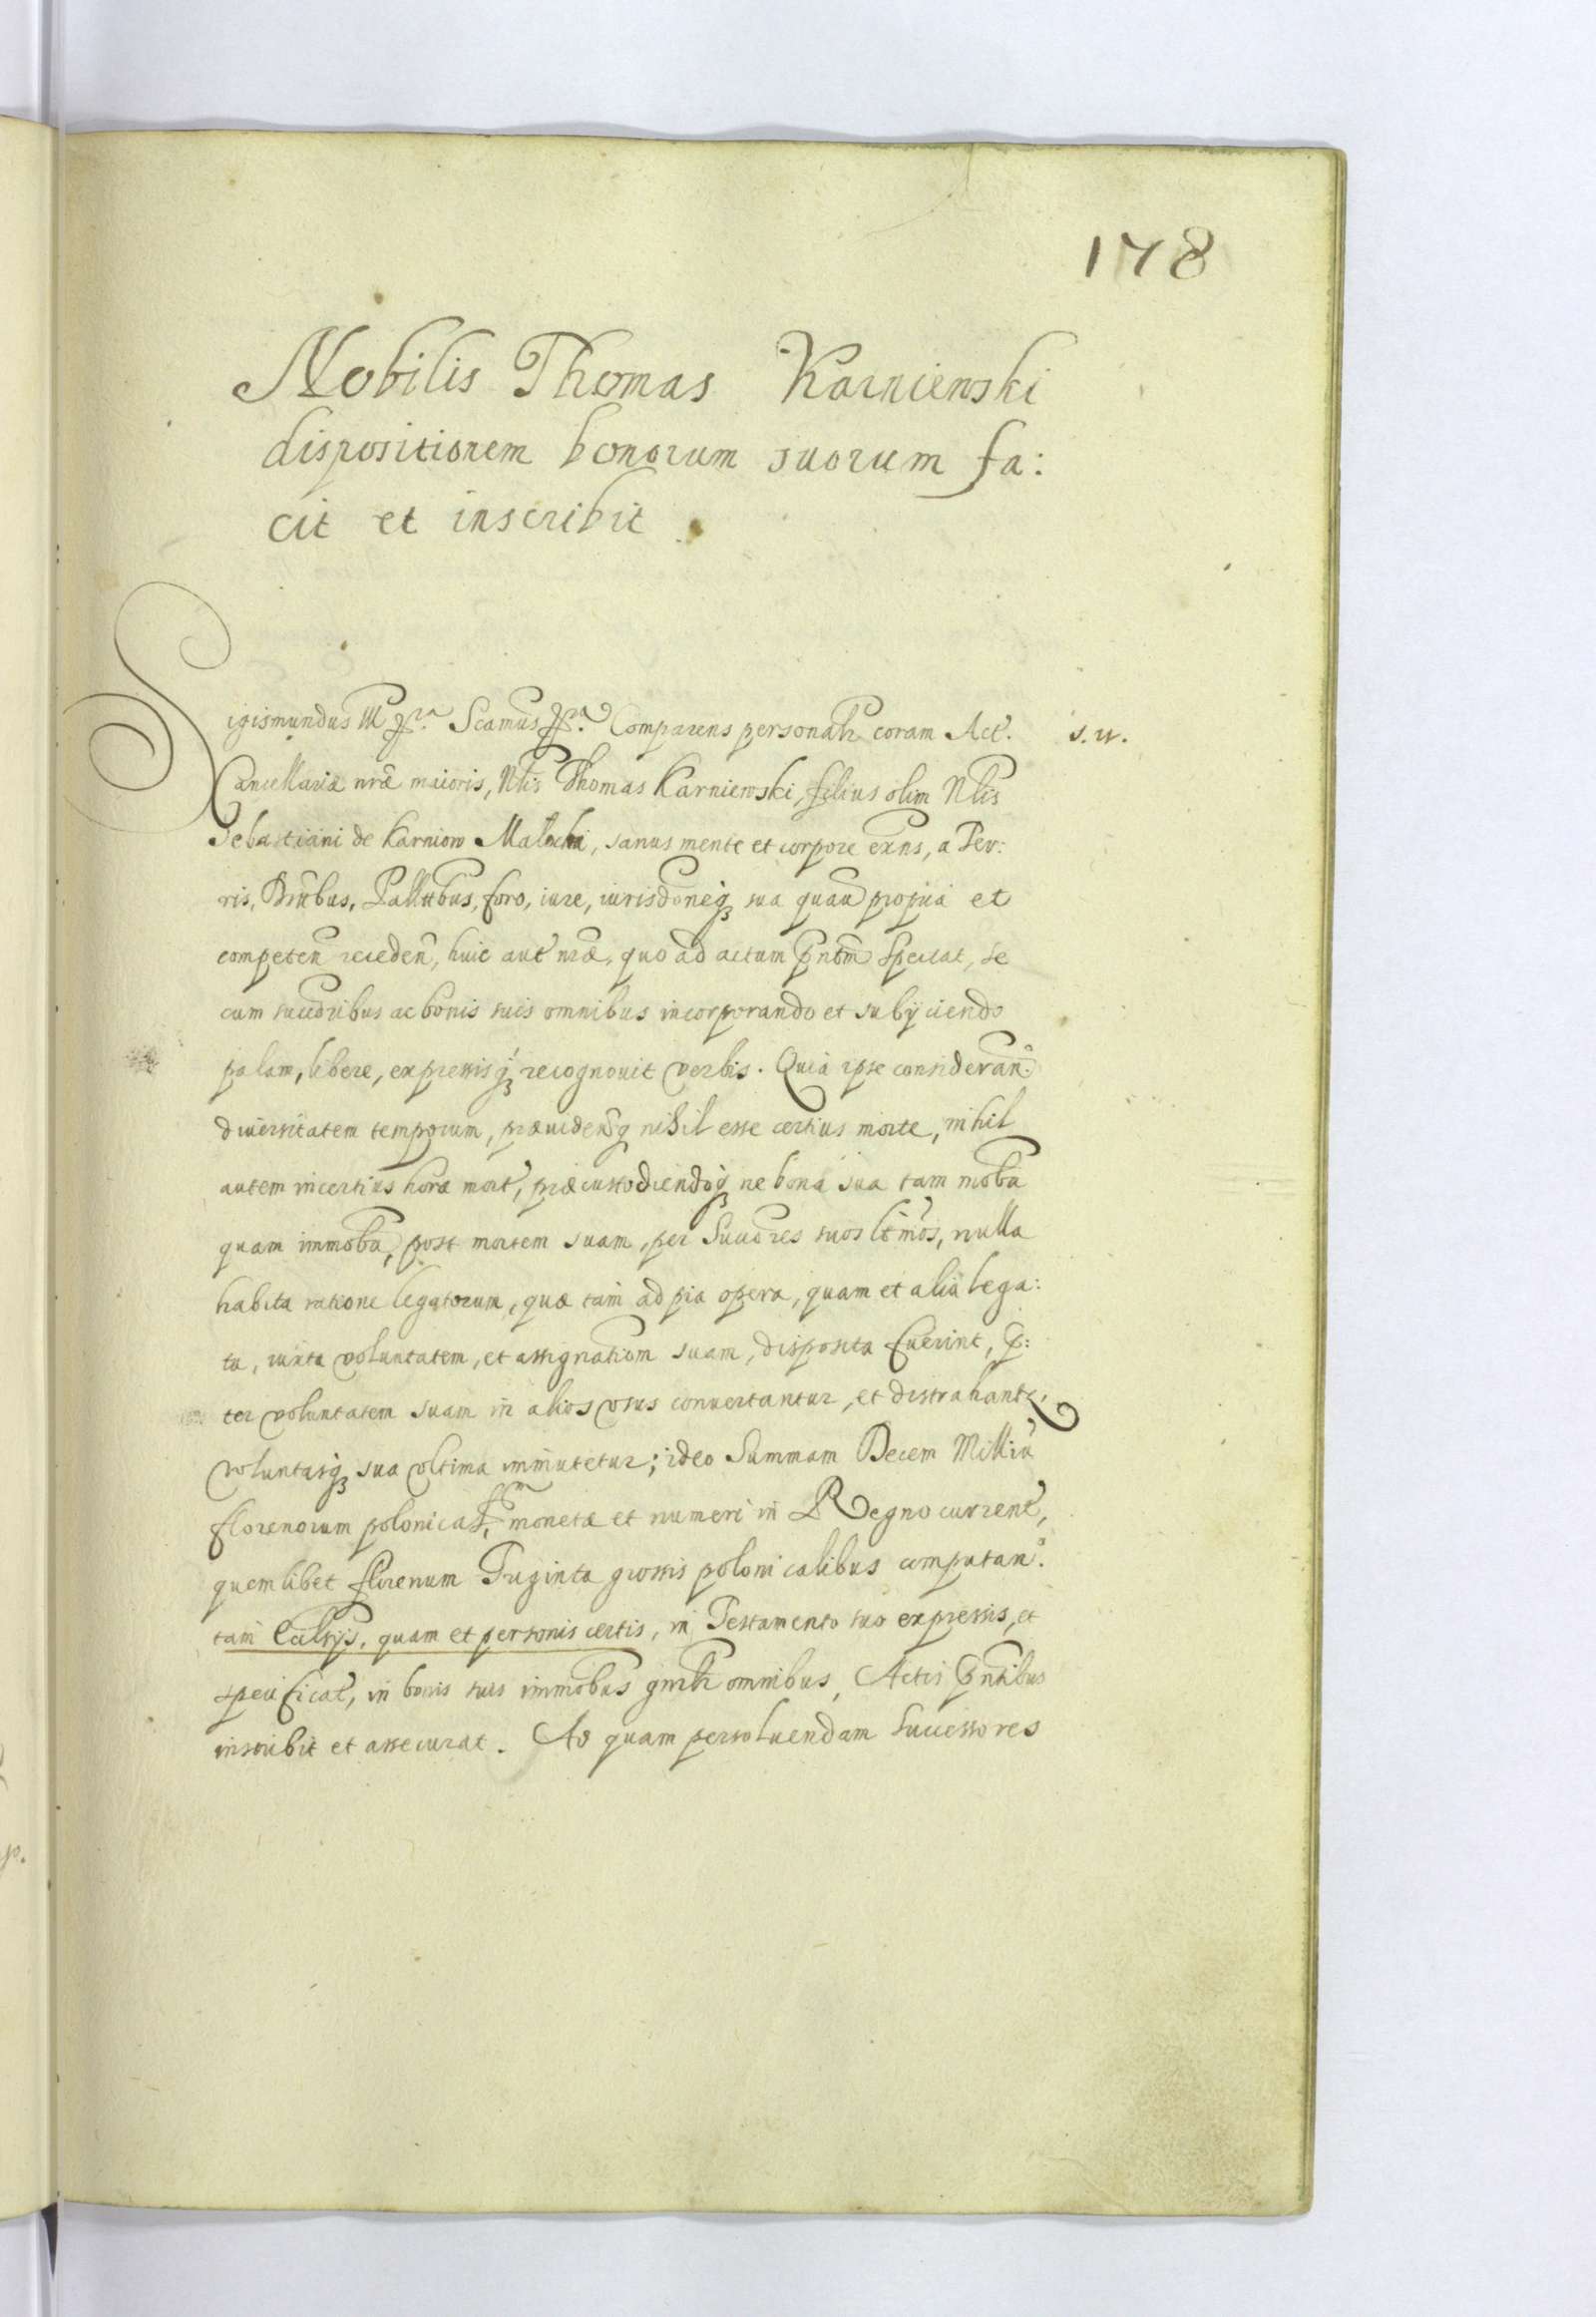 178
Nobilis Thomas Karniewski
dispositionem bonorum suorum fa:
cit et inscribit.
Sigismundus III Scamus Comparens personalr coram Act. s. w.
Cancellariæ nræ maioris, Nlis Thomas Karniewski, filius olim Nlis
Sebastiani de Karniow, sanus mente et corpore exns, a Ter:
ris, Dnĩbus, foro, iure, iurisdoneq sua quaũ propria et
competeñ recedeñ, huic aut nræ, quo ad actum pñtem spectat, se
cum succõribus ac bonis suis omnibus incorporando et subijciendo
palam, libere, expressisq recognouit verbis. Quia ipse consideran.
diuersitatem temporum, præuidensq nihil esse certius morte, nihil
autem incertius hora mort, præcustodiendoq ne bona sua tam mobã
quam immobã, post mortem suam, per Succõres suos ltimos, nulla
habita ratione legatorum, quæ tam ad pia opera, quam et alia lega:
ta, iuxta voluntatem, et assignationem suam, disposita fuerint, p:
ter voluntatem suam in alios vsus conuertantur, et distrahantr,
voluntasq sua vltima immutetur; ideo Summam Decem Milliũ
florenorum polonical, monetæ et numeri in Regno current,
quemlibet florenum Triginta grossis polonicalibus computan.
tam Ecclsijs, quam et personis certis, in Testamento suo expressis, et
specificat, in bonis suis immobus gnrlr omnibus, Actis pñtibus
inscribit et assecurat. Ad quam persoluendam Successores